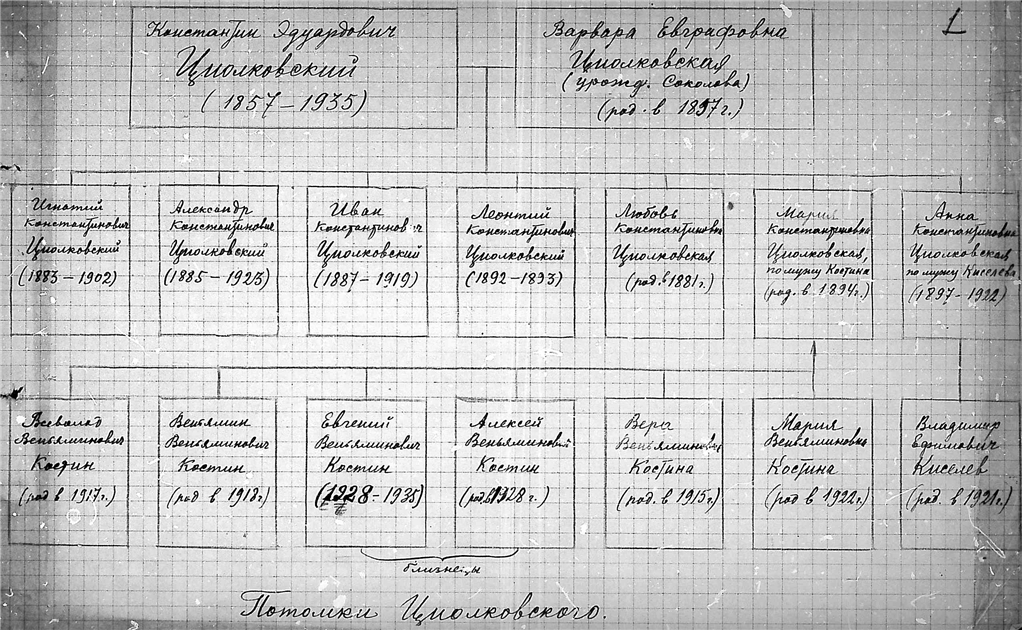 1
Константин Эдуардович
Циолковский
(1857 – 1935)
Варвара Евграфовна
Циолковская
(урожд. Соколова)
(род. в 1857 г.)
Игнатий
Константинович
Циолковский
(1883 – 1902)
Александр
Константинович
Циолковский
(1885 – 1923)
Иван
Константинович
Циолковский
(1887 – 1919)
Леонтий
Константинович
Циолковский
(1892 – 1893)
Любовь
Константиновна
Циолковская
(род. в 1881 г.)
Мария
Константиновна
Циолковская,
по мужу Костина
(род. в 1894 г.)
Анна
Константиновна
Циолковская,
по мужу Киселева
(1897 – 1922)
Всеволод
Веньяминович
Костин
(род в 1917 г.)
Веньямин
Веньяминович
Костин
(род в 1918 г)
Евгений
Веньяминович
Костин
(1928 – 1935)
Алексей
Веньяминовий
Костин
(род. в 1928 г.)
Вера
Веньяминовна
Костина
(род. в 1915 г)
Мария
Веньяминовна
Костина
(род в 1922 г.)
Владимир
Ефимович
Киселев
(род. в 1921 г.)
близнецы
Потомки Циолковского.